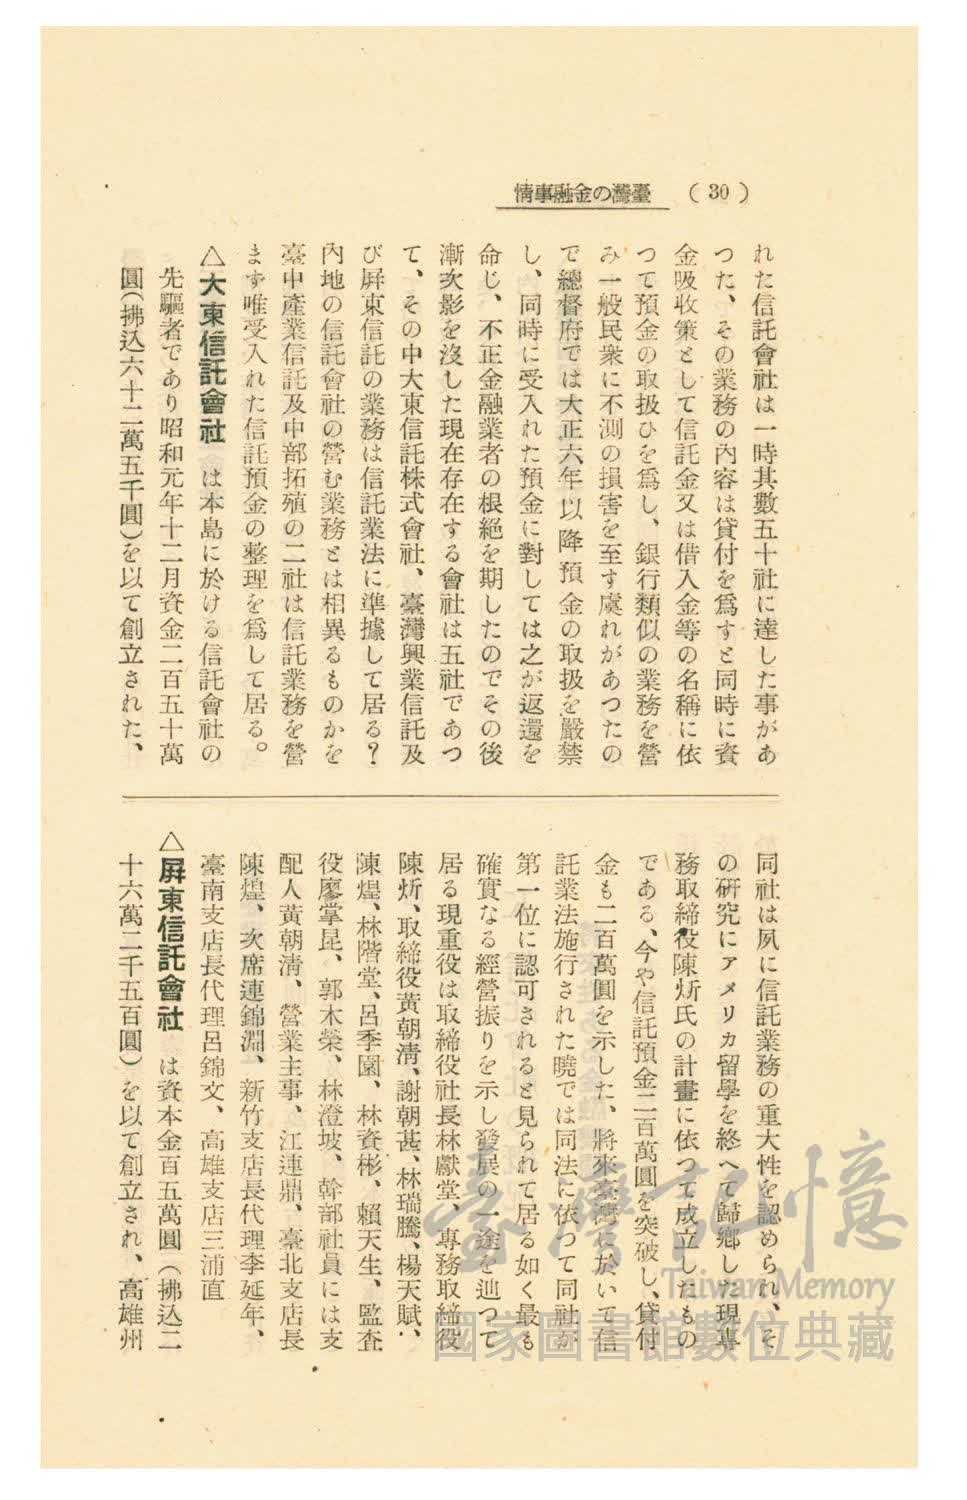 (30) 臺灣の金融事情
れた信託會社は一時其數五十社に達した事があ
つた、その業務の內容は貸付を爲すと同時に資
金吸收策として信託金又は借入金等の名稱に依
つて預金の取扱ひを爲し、銀行類似の業務を營
み一般民衆に不測の損害を至す虞れがあつたの
で總督府では大正六年以降預金の取扱を嚴禁
し、同時に受入れた預金に對しては之が返還を
命じ、不正金融業者の根絕を期したのでその後
漸次影を沒した現在存在する會社は五社であつ
て、その中大東信託株式會社、臺灣興業信託及
び屏東信託の業務は信託業法に準據して居る?
內地の信託會社の營む業務とは相異るものかを
臺中產業信託及中部拓殖の二社は信託業務を營
まず唯受入れた信託預金の整理を爲して居る。
△大東信託會社 は本島に於ける信託會社の
先驅者であり昭和元年十二月資金二百五十萬
圓(拂込六十二萬五千圓)を以て創立された、
同社は夙に信託業務の重大性を認められ、そ
の硏究にアメリカ留學を終へて歸鄕した現專
務取締役陳炘氏の計畫に依つて成立したもの
である、今や信託預金二百萬圓を突破し、貸付
金も二百萬圓を示した、將來臺灣に於いて信
託業法施行された曉では同法に依つて同社が
第一位に認可されると見られて居る如く最も
確實なる經營振りを示し發展の一途を辿つて
居る現重役は取締役社長林獻堂、專務取締役
陳炘、取締役黃朝淸、謝朝甚、林瑞騰、楊天賦、
陳煌、林階堂、呂季園、林資彬、賴天生、監查
役廖掌昆、郭木榮、林澄坡、幹部社員には支
配人黃朝淸、營業主事、江連鼎、臺北支店長
陳煌、次席連錦淵、新竹支店長代理李延年、
臺南支店長代理呂錦文、高雄支店三浦直
△屏東信託會社 は資本金百五萬圓(拂込二
十六萬二千五百圓)を以て創立され、高雄州
臺灣記憶
Taiwan Memory
國家圖書館數位典藏